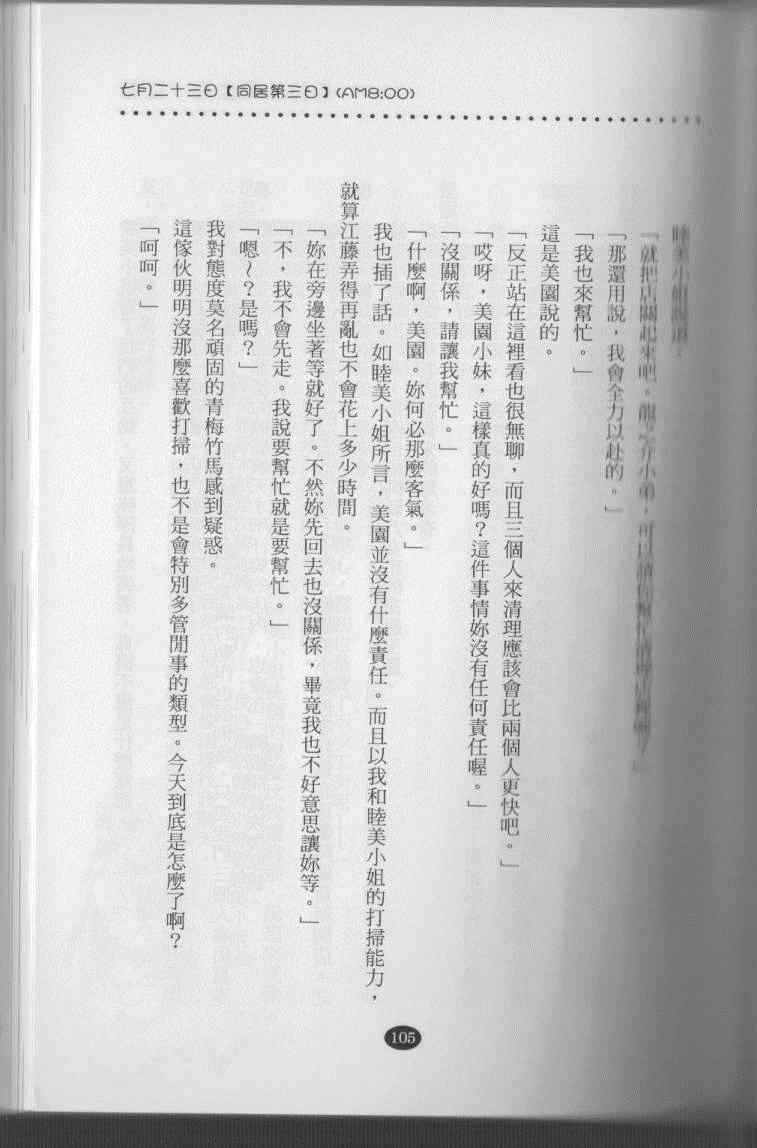 七月二十三日【同居第三日】(AM8:00)
睦美小姐說道：
「就把店關起來吧。龍之介小弟，可以請你幫忙清理店裡嗎？」
「那還用說，我會全力以赴的。」
「我也來幫忙。」
這是美園說的。
「反正站在這裡看也很無聊，而且三個人來清理應該會比兩個人更快吧。」
「哎呀，美園小妹，這樣真的好嗎？這件事情妳沒有任何責任喔。」
「沒關係，請讓我幫忙。」
「什麼啊，美園。妳何必那麼客氣。」
我也插了話。如睦美小姐所言，美園並沒有什麼責任。而且以我和睦美小姐的打掃能力，
就算江藤弄得再亂也不會花上多少時間。
「妳在旁邊坐著等就好了。不然妳先回去也沒關係，畢竟我也不好意思讓妳等。」
「不，我不會先走。我說要幫忙就是要幫忙。」
「嗯～？是嗎？」
我對態度莫名頑固的青梅竹馬感到疑惑。
這傢伙明明沒那麼喜歡打掃，也不是會特別多管閒事的類型。今天到底是怎麼了啊？
「呵呵。」
105